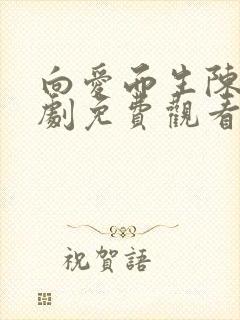 向愛而生陳
劇免費觀看
祝賀語